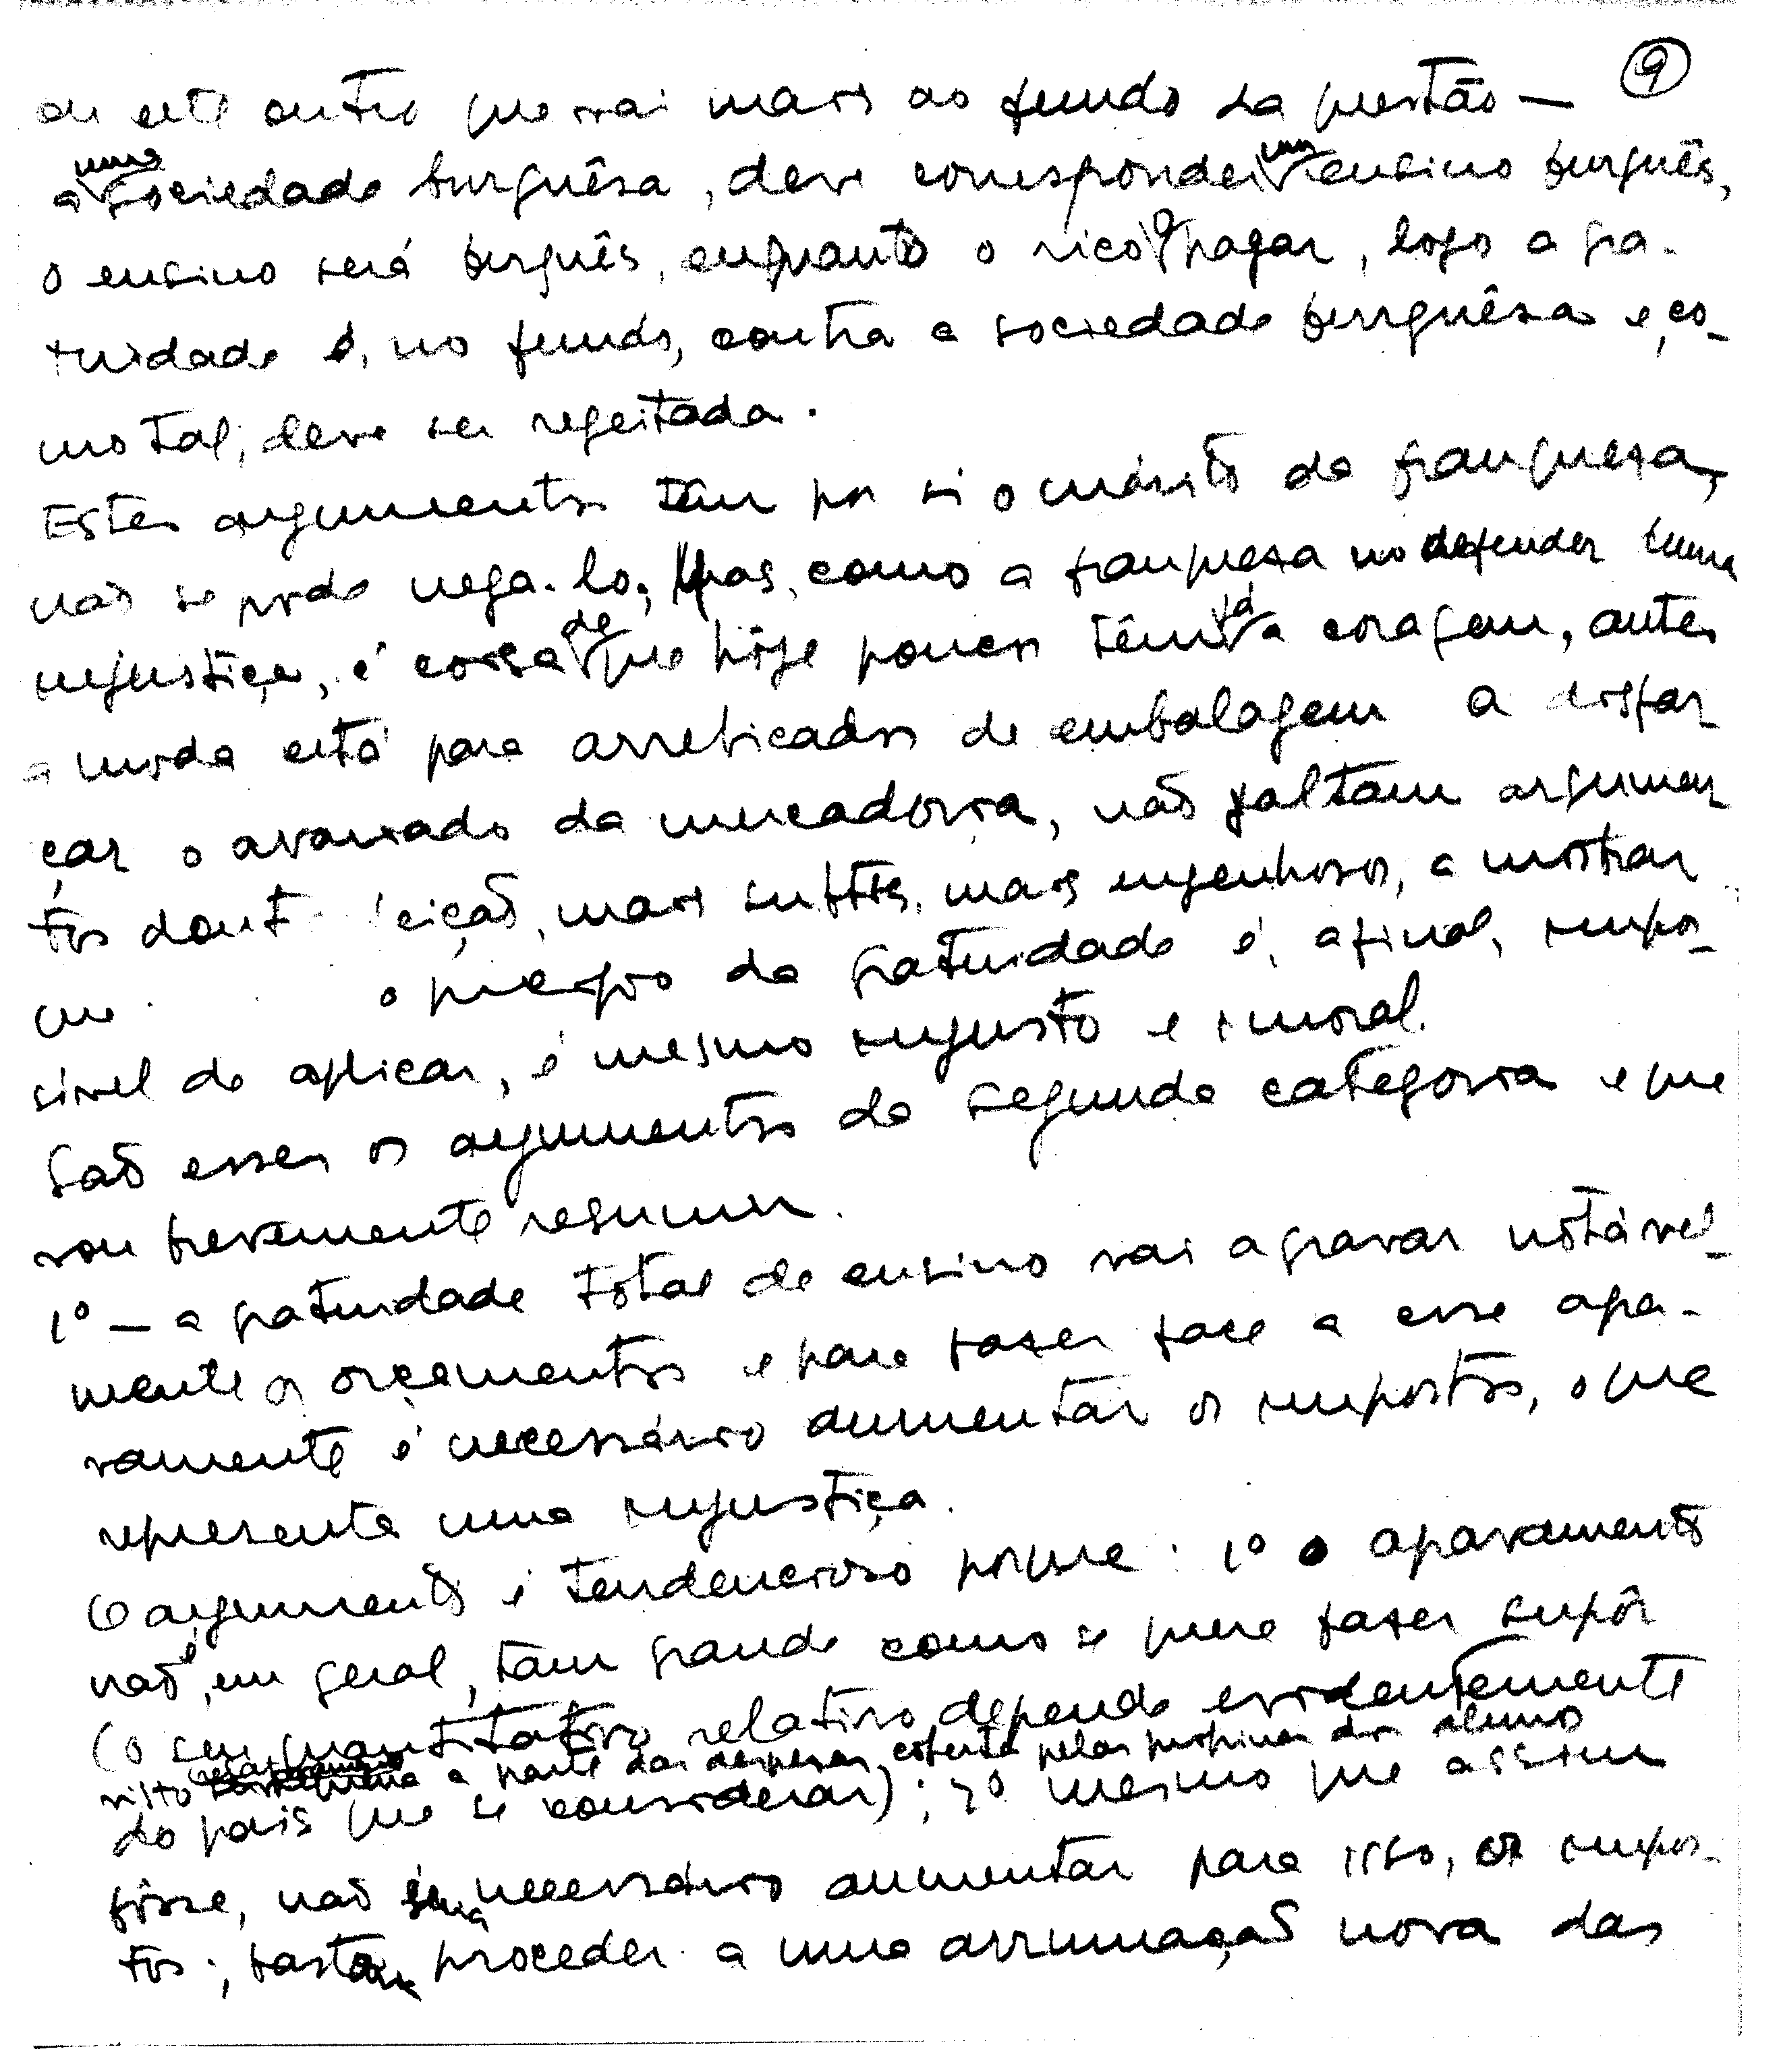 9
ou este outro que vai mais ao fundo da questão —
a uma sociedade burguêsa, deve corresponder um ensino burguês,
o ensino será burguês, enquanto o rico o pagar, logo a gra-
tuidade é, no fundo, contra a sociedade burguêsa e, co-
mo tal, deve ser regeitada.
Estes argumentos têm por si o mérito da franqueza,
não se pode nega-lo; mas, como a franqueza no defender uma
injustiça, é coisa de que hôje poucos têm já a coragem, antes
a moda está para arrebicados de embalagem a disfar-
çar o avariado da mercadoria, não faltam argumen-
tos mais subtis, mais engenhosos, a mostrar
que o da gratuidade é, afinal, impos-
sível de aplicar, é mesmo injusto e imoral.
São esses os argumentos da segunda categoria e que
vou brevemente resumir.
1º — a gratuidade total de ensino vai agravar notávei-
mente os orçamentos e para fazer face a esse agra-
vamente é necessário aumentar os impostos, o que
representa uma injustiça.
O argumento é tendencioso porque: 1º o agravamento
não é, em geral, tam grande como se quere fazer supôr
(o seu quantitativo relativo depende evidentemente
visto a parte das despesas coberta pelas propinas dos alunos
do país que se considerar); 2º mesmo que assim
fôsse, não seria necessário aumentar para isso, os impos-
tos; basta proceder a uma arrumação nova das